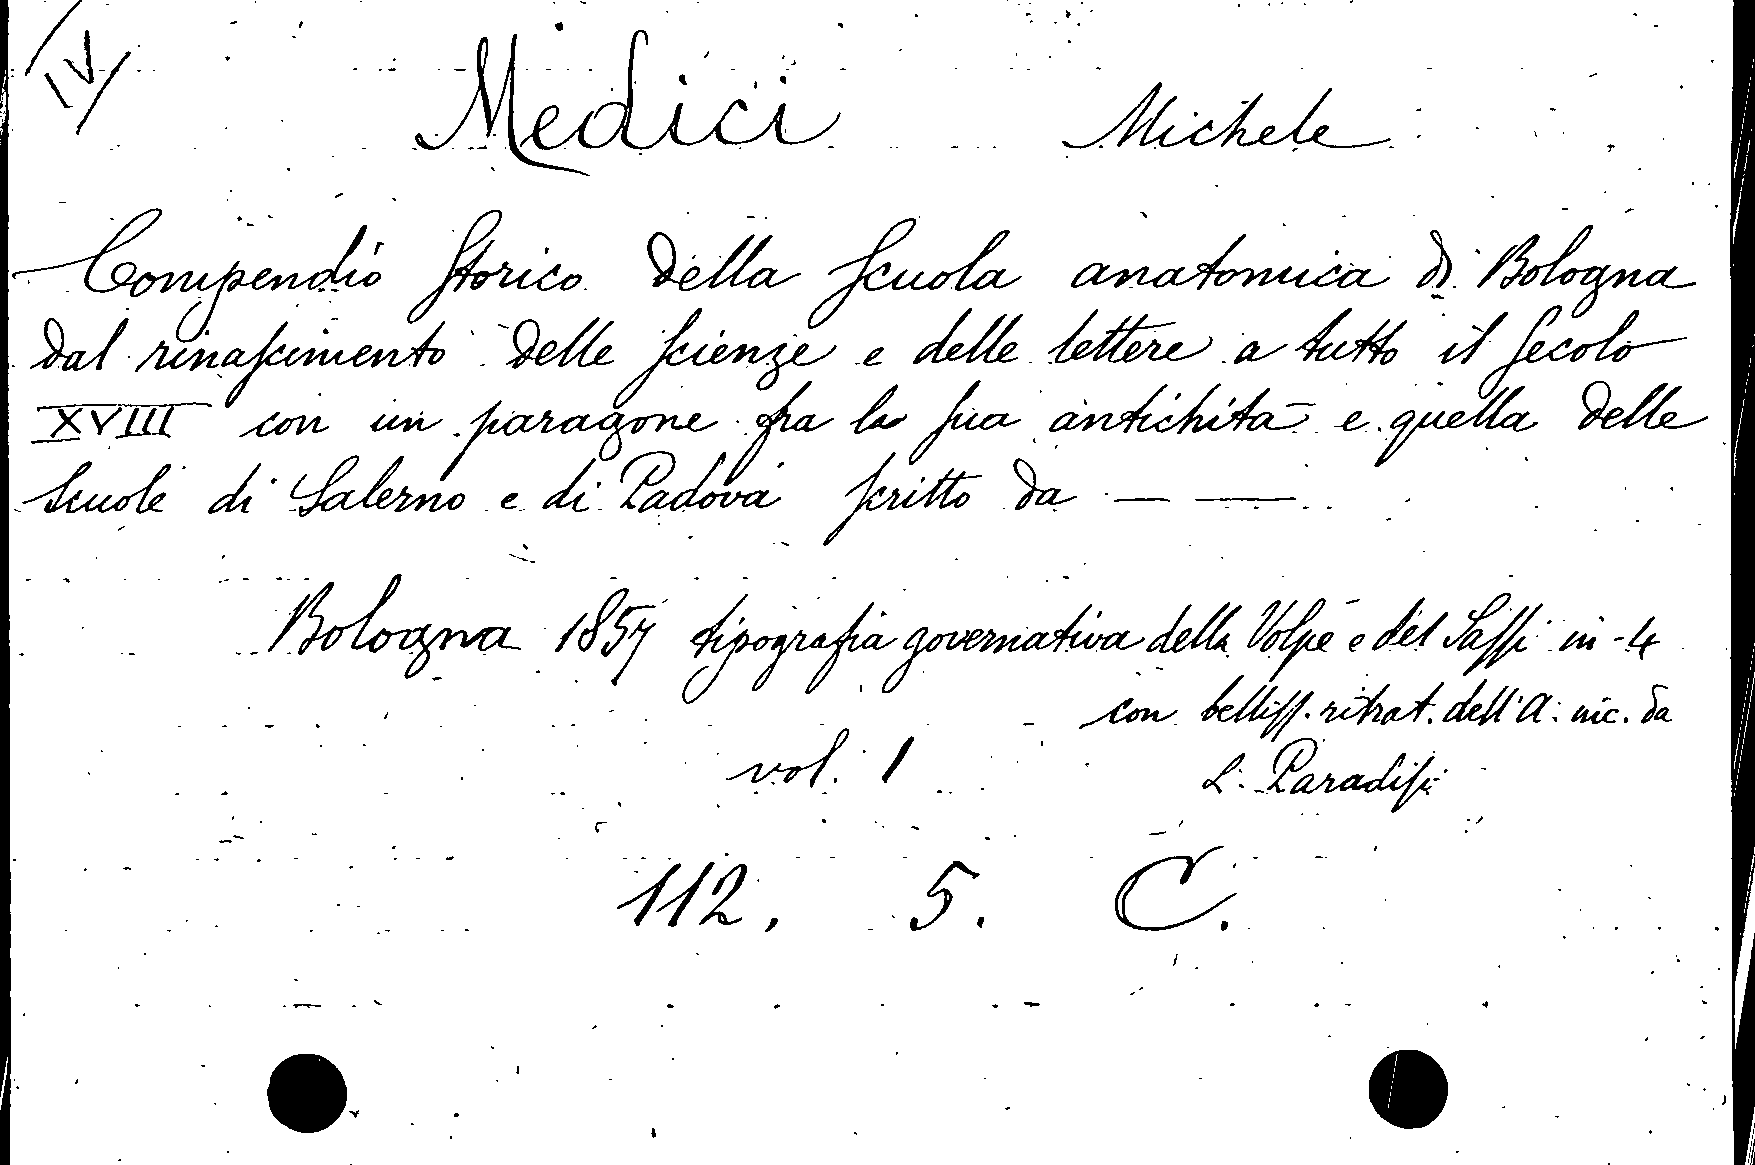 IV
Medici Michele
Compendio storico della scuola anatomica di Bologna
dal rinascimento delle scienze e delle lettere a tutto il secolo
XVIII con un paragone fra la sua antichità e quella delle
scuole di Salerno e di Padova scritto da — —
Bologna 1857 tipografia governativa della Volpe e del Sassi in-4
con belliss. ritrat. dell'A. inc. da
vol. 1 L. Paradisi
112. 5. C.